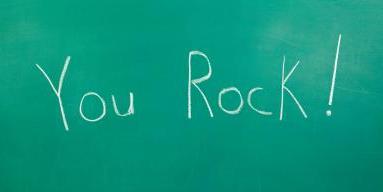 You Rock!